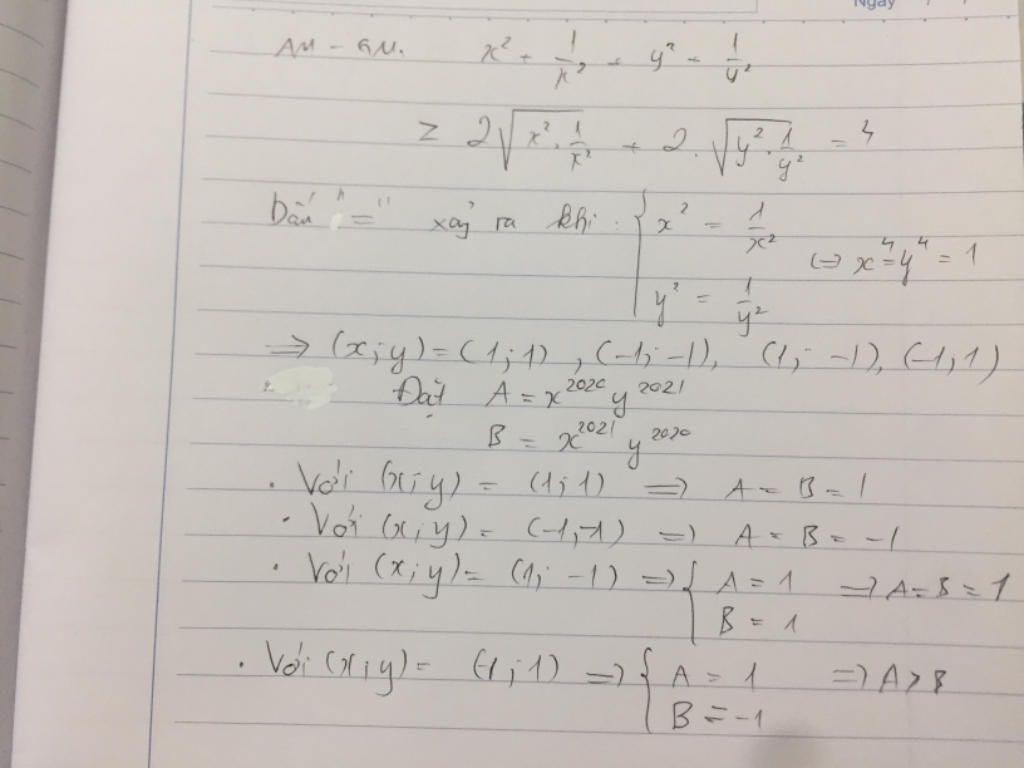 Ngày / /
AM - GM. x² + 1/x² + y² + 1/y²
≥ 2√(x² . 1/x²) + 2 . √(y² . 1/y²) = 4
Dấu "=" xảy ra khi : { x² = 1/x²
(=) x⁴ = y⁴ = 1
y² = 1/y²
=> (x; y) = (1; 1) , (-1; -1), (1; -1), (-1, 1)
Đặt A = x²⁰²⁰ y²⁰²¹
B = x²⁰²¹ y²⁰²⁰
. Với (x; y) = (1; 1) => A = B = 1
. Với (x; y) = (-1; -1) => A = B = -1
. Với (x; y) = (1; -1) => { A = 1 => A = B = 1
B = 1
. Với (x; y) = (-1; 1) => { A = 1 => A > B
B = -1